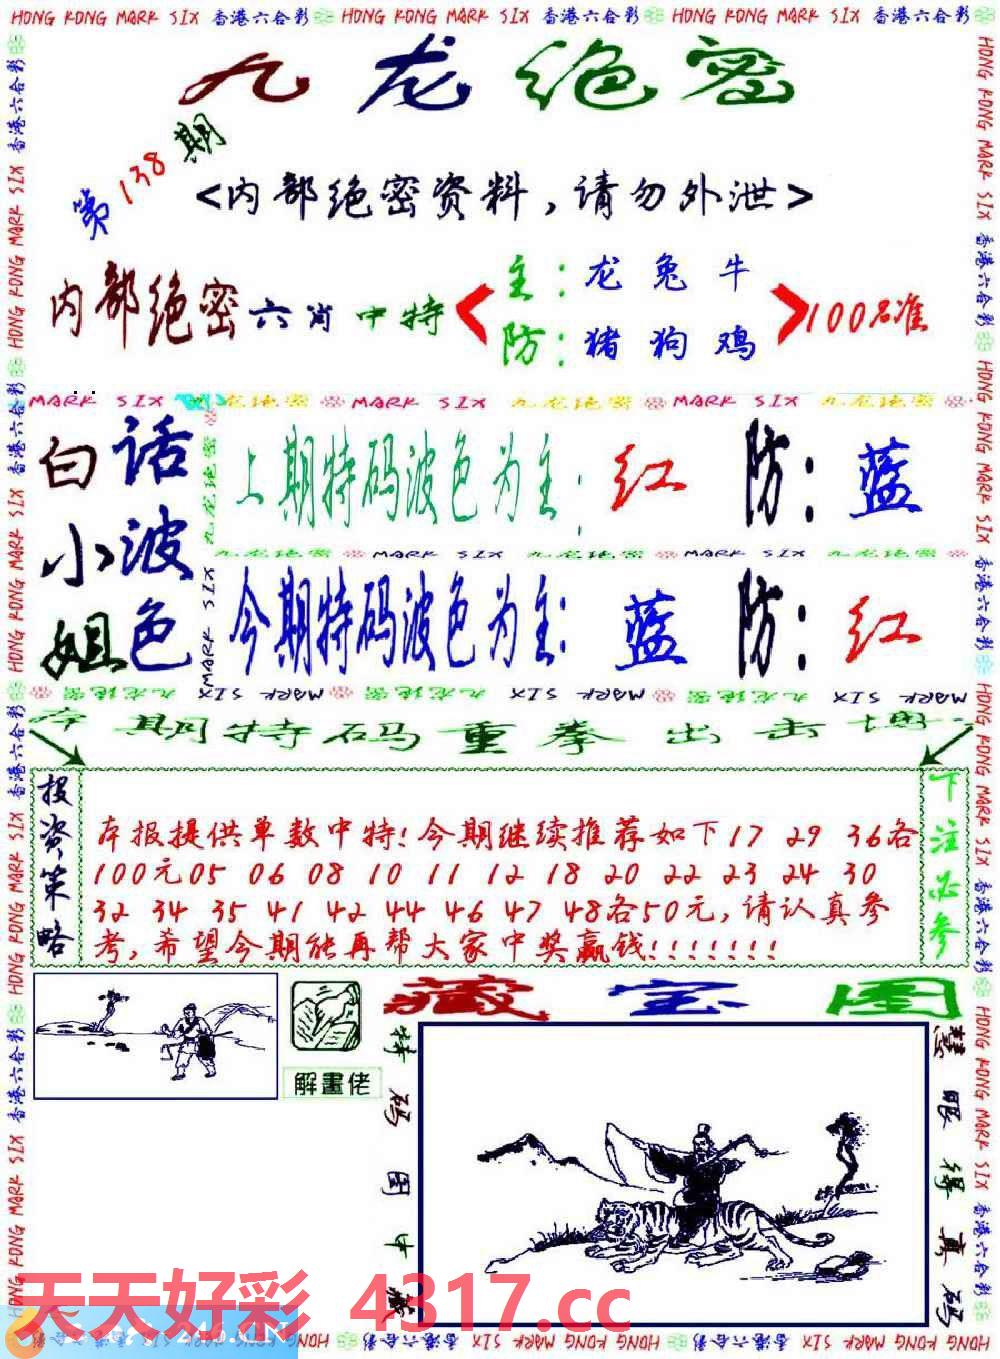 HONG KONG MARK SIX 香港六合彩 HONG KONG MARK SIX 香港六合彩 HONG KONG MARK SIX 香港六合彩
九龙绝密
第138期
<内部绝密资料，请勿外泄>
内部绝密六肖中特
主：龙 兔 牛
防：猪 狗 鸡
100%准
MARK SIX 九龙绝密 MARK SIX 九龙绝密 MARK SIX 九龙绝密
白小姐
话波色
上期特码波色为主：红 防：蓝
九龙绝密 MARK SIX 九龙绝密 MARK SIX 九龙绝密
今期特码波色为主：蓝 防：红
本期特码重拳出击
投资策略
本报提供单数中特！今期继续推荐如下17 29 36各
100元05 06 08 10 11 12 18 20 22 23 24 30
32 34 35 41 42 44 46 47 48各50元，请认真参
考，希望今期能再帮大家中奖赢钱！！！！！！！
下注必参
藏宝图
解畫佬
特码图中藏
慧眼得真码
天天好彩 4317.cc
246.CN